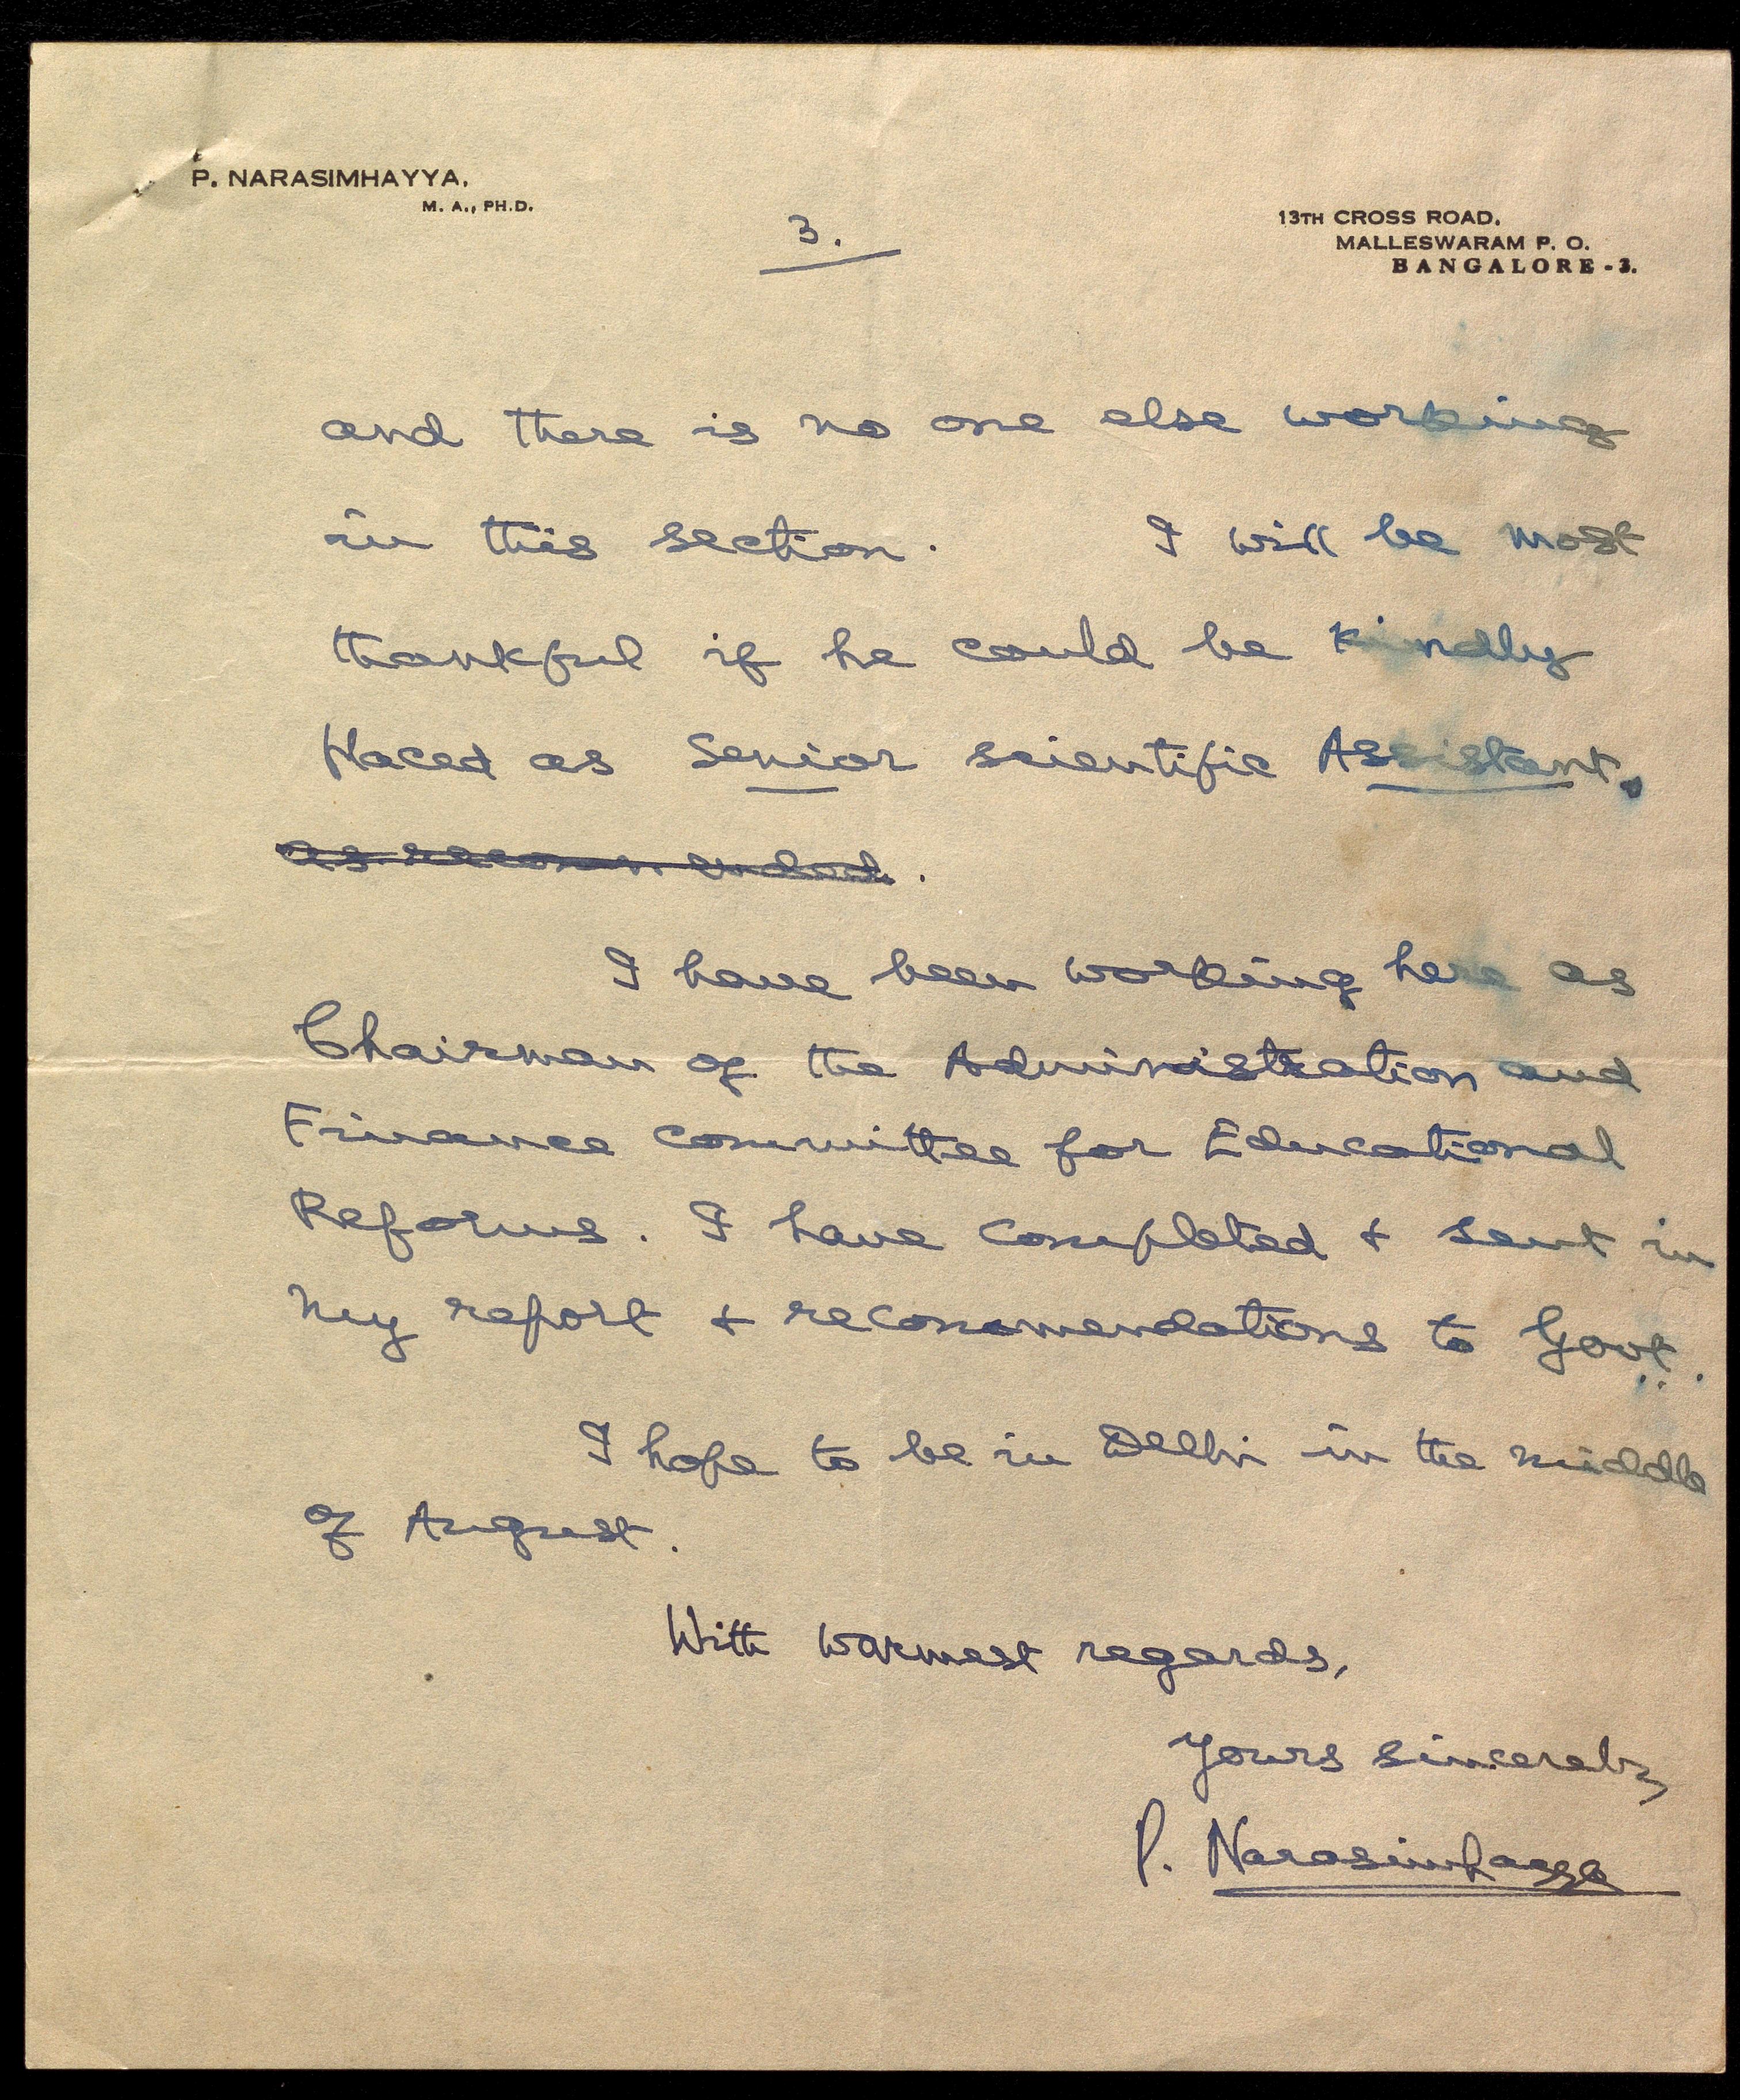 P. NARASIMHAYYA,
M. A., PH.D.
3.
13TH CROSS ROAD,
MALLESWARAM P. O.
BANGALORE - 3.
and there is no one else working
in this section. I will be most
thankful if he could be kindly
placed as Senior scientific Assistant.
as recommended.
I have been working here as
Chairman of the Administration and
Finance committee for Educational
Reforms. I have completed & sent in
my report & recommendations to Govt.
I hope to be in Delhi in the middle
of August.
With warmest regards,
Yours sincerely,
P. Narasimhayya